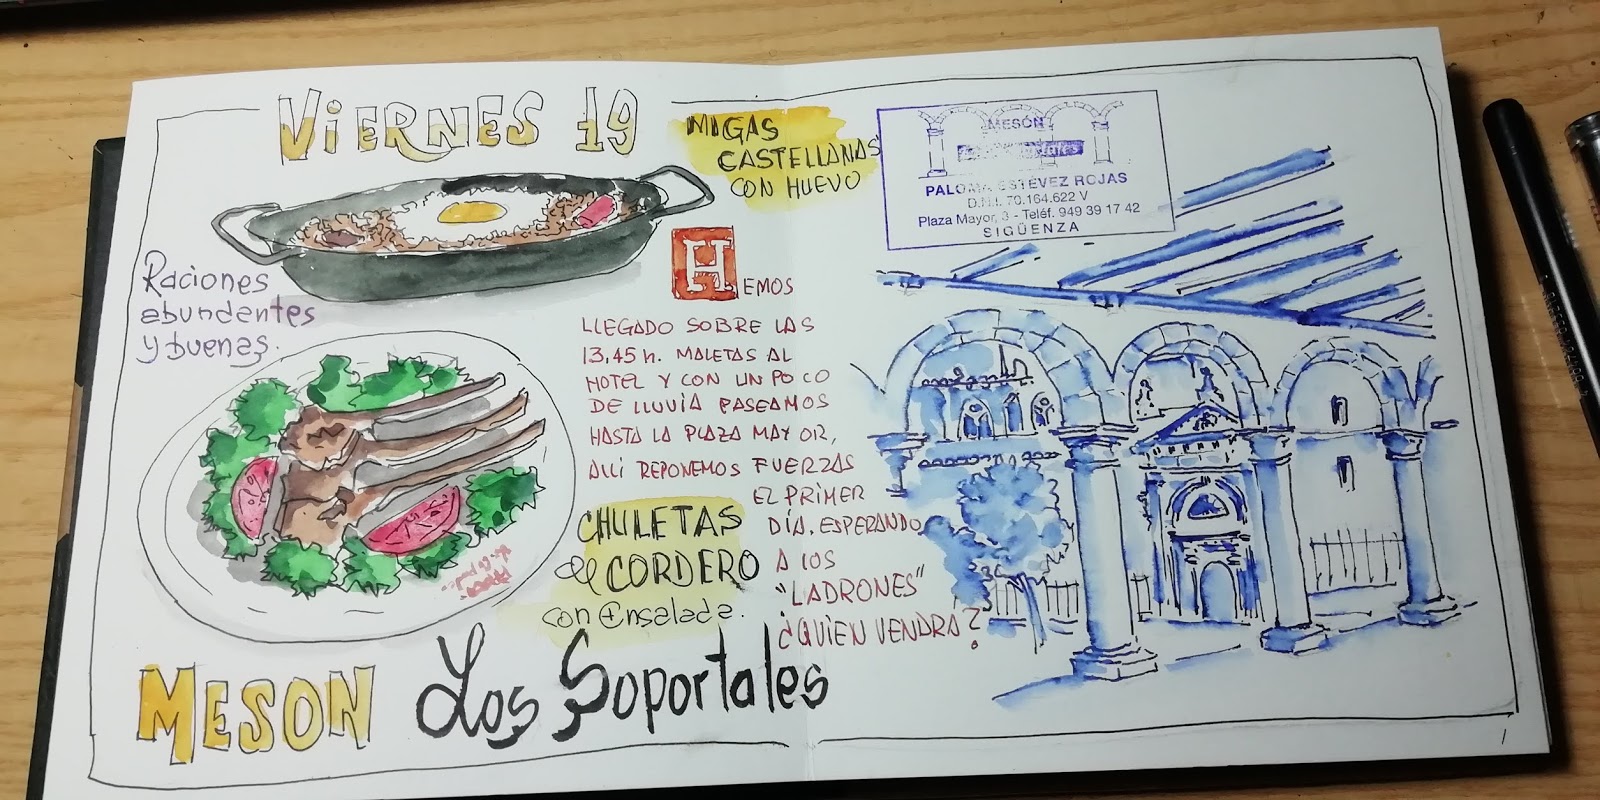 ViERNES 19
MIGAS
CASTELLANAS
CON HUEVO
MESÓN
PALOMA ESTÉVEZ ROJAS
D.N.I. 70.164.622 V
Plaza Mayor, 3 - Teléf. 949 39 17 42
SIGÜENZA
Raciones
abundantes
y buenas.
HEMOS
LLEGADO SOBRE LAS
13,45 h. MALETAS AL
HOTEL Y CON UN POCO
DE LLUVIA PASEAMOS
HASTA LA PLAZA MAYOR,
ALLI REPONEMOS FUERZAS
EL PRIMER
DÍA. ESPERANDO
A LOS
"LADRONES"
¿QUIEN VENDRÁ?
CHULETAS
de CORDERO
con Ensalada.
MESON Los Soportales